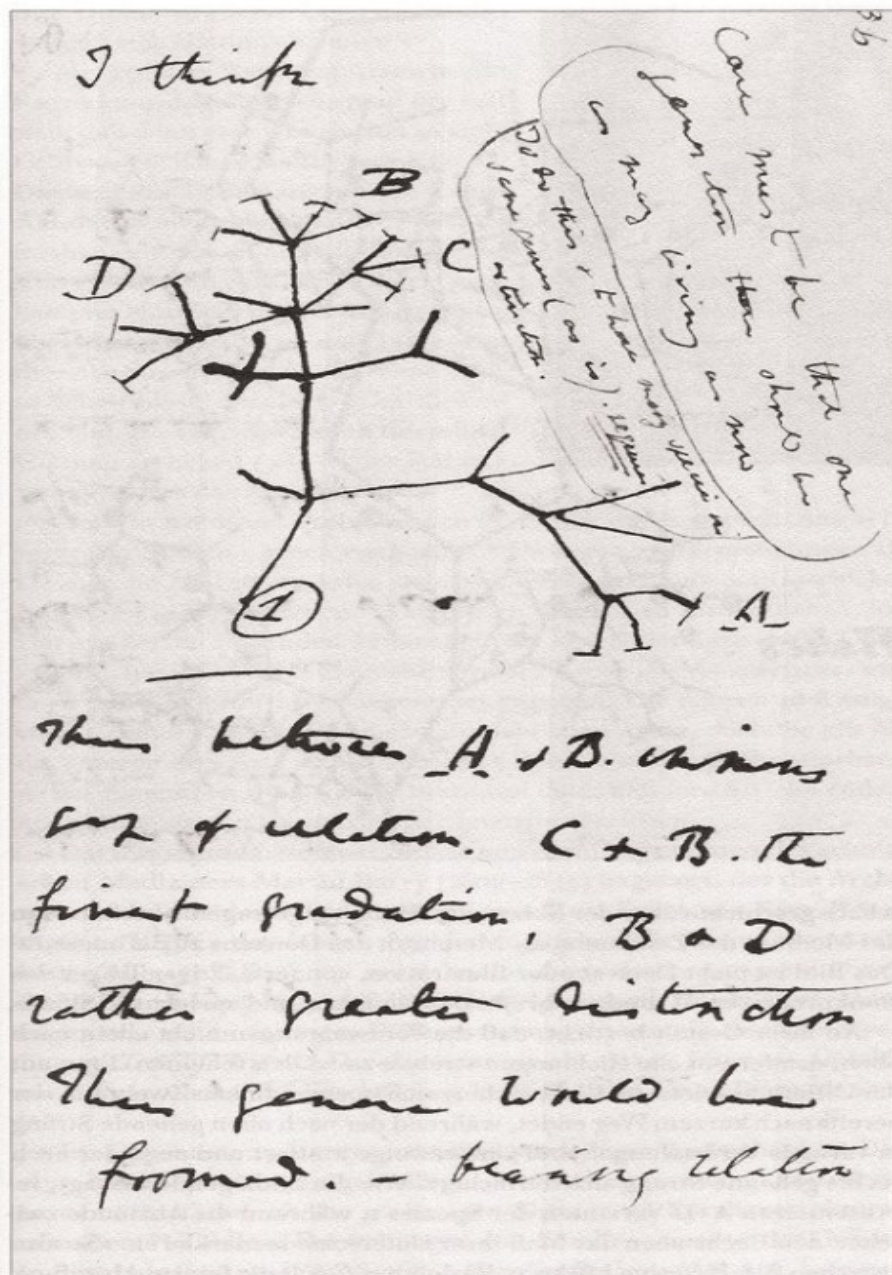 36
I think
Case must be that one
generation then should be
as many living as now
To do this & to have many species in
same genus (as is). requires
extinction.
B
D
C
1
A
Thus between A & B. immense
gap of relation. C & B. The
finest gradation, B & D
rather greater distinction
Thus genera would be
formed. bearing relation